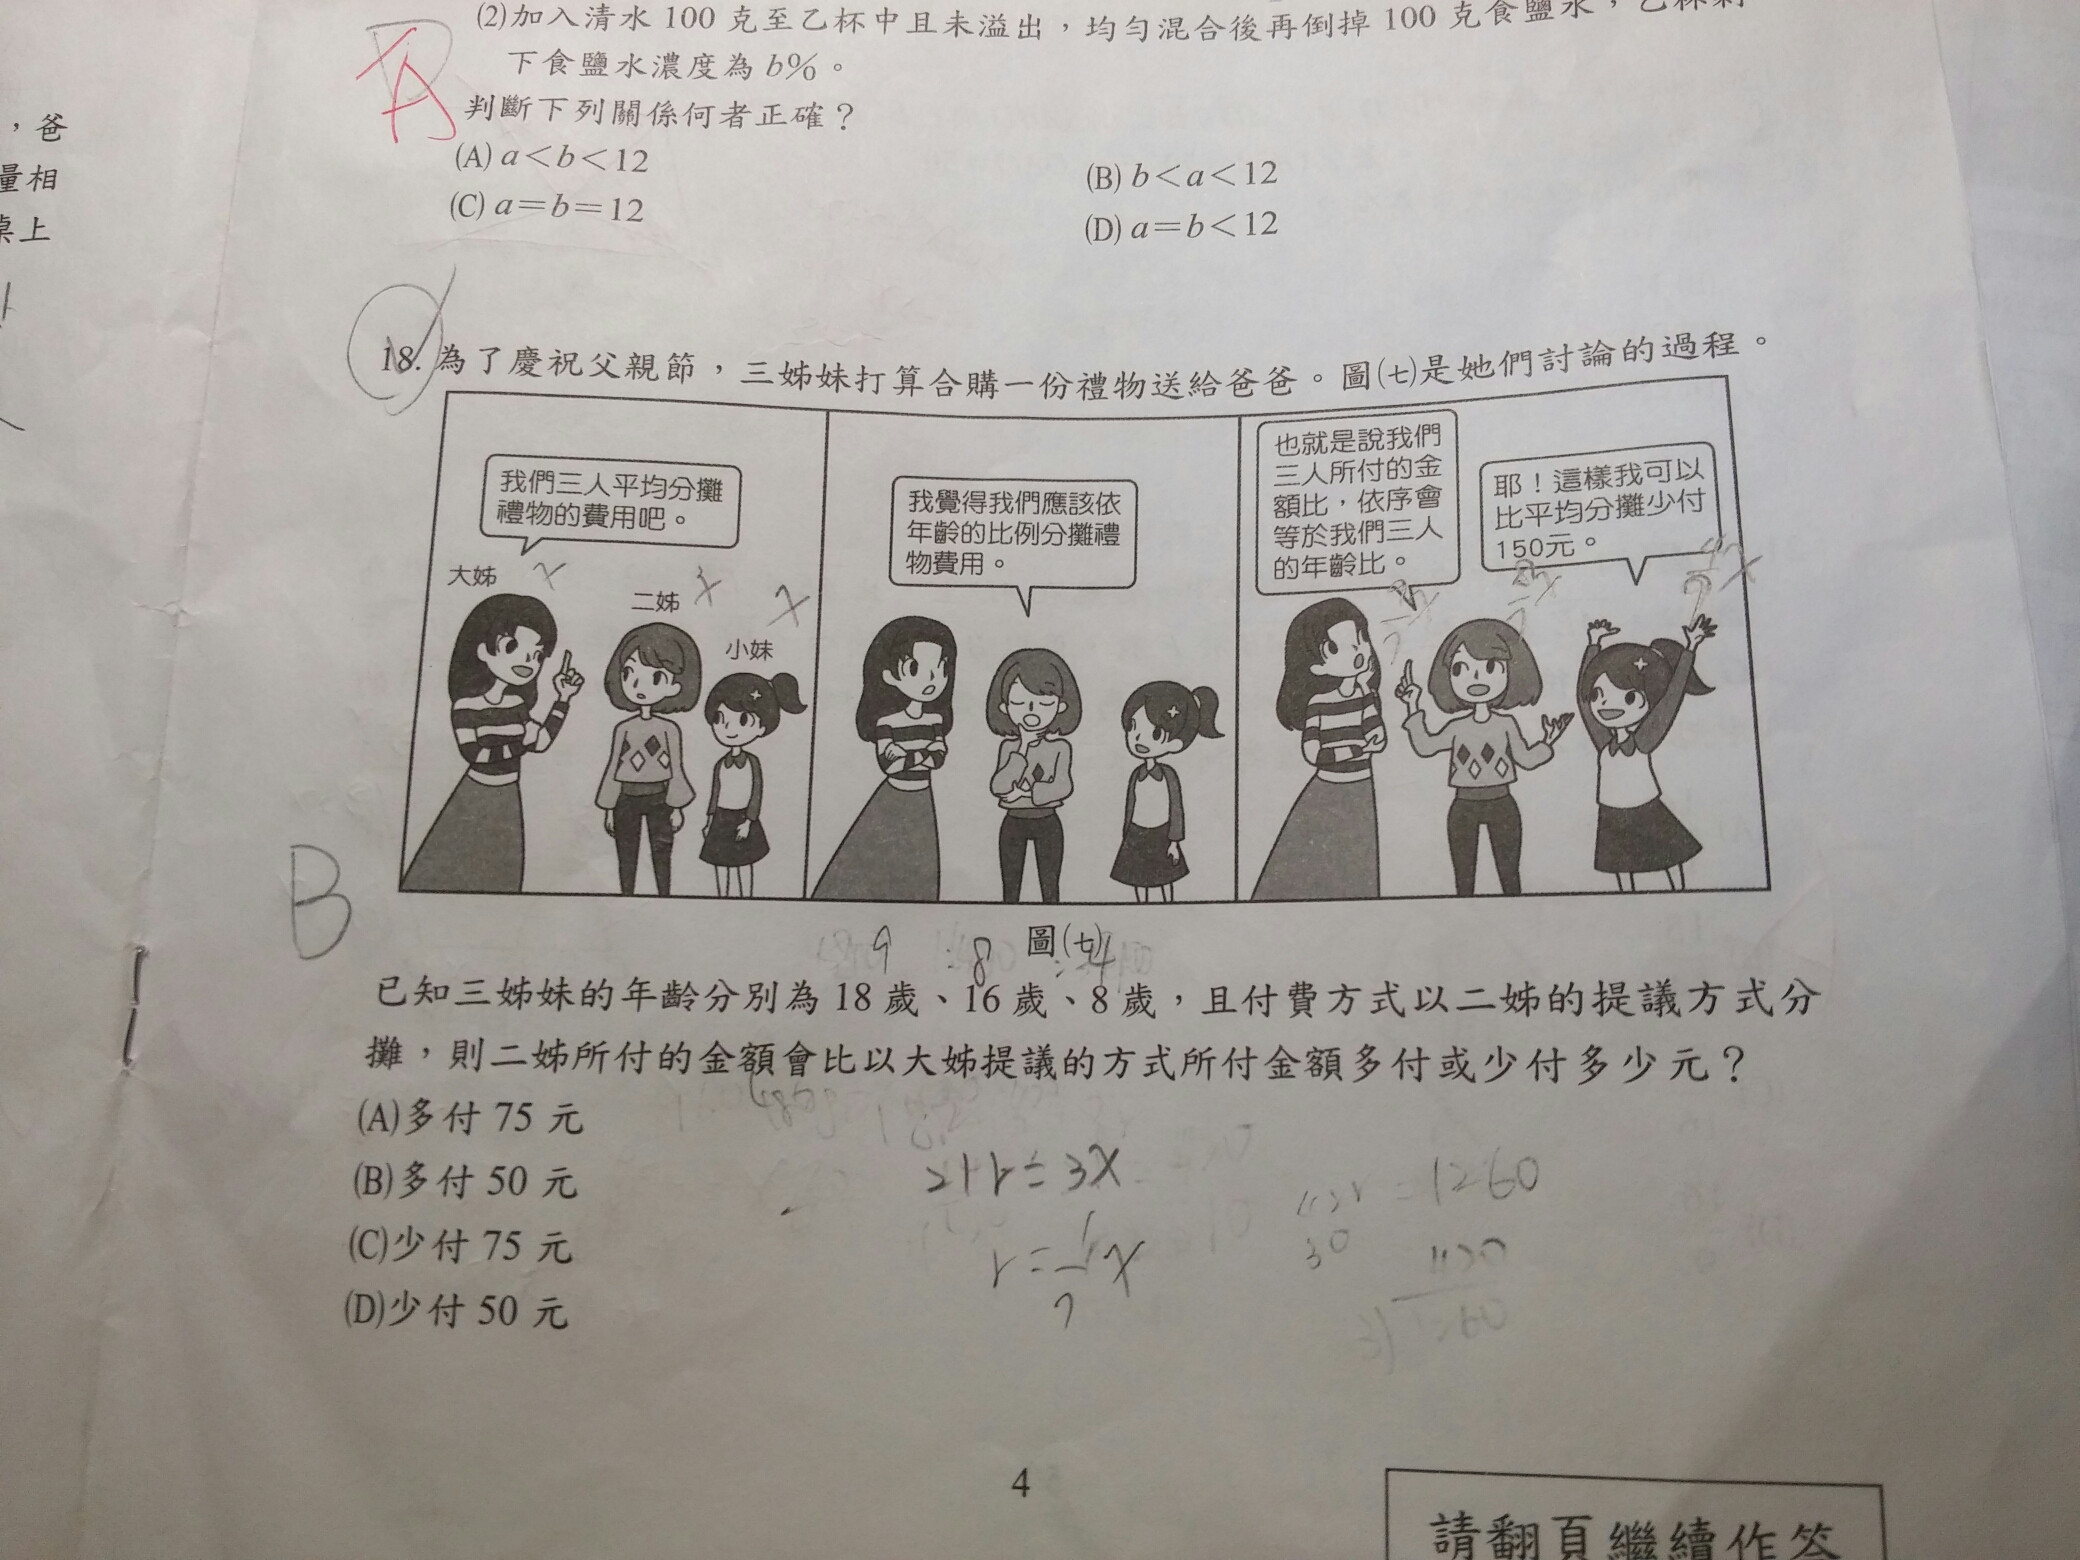 (2)加入清水 100 克至乙杯中且未溢出，均勻混合後再倒掉 100 克食鹽水，乙杯剩
下食鹽水濃度為 b%。
A
判斷下列關係何者正確？
(A) a＜b＜12
(B) b＜a＜12
(C) a＝b＝12
(D) a＝b＜12
，爸
量相
桌上
18. 為了慶祝父親節，三姊妹打算合購一份禮物送給爸爸。圖(七)是她們討論的過程。
我們三人平均分攤
禮物的費用吧。
大姊
x
二姊
x
小妹
x
我覺得我們應該依
年齡的比例分攤禮
物費用。
也就是說我們
三人所付的金
額比，依序會
等於我們三人
的年齡比。
耶！這樣我可以
比平均分攤少付
150元。
B
圖(七)
9 : 8 : 4
已知三姊妹的年齡分別為 18 歲、16 歲、8 歲，且付費方式以二姊的提議方式分
攤，則二姊所付的金額會比以大姊提議的方式所付金額多付或少付多少元？
(A)多付 75 元
(B)多付 50 元
(C)少付 75 元
(D)少付 50 元
21r=3x
r=1/7x
=1260
30
4
請翻頁繼續作答